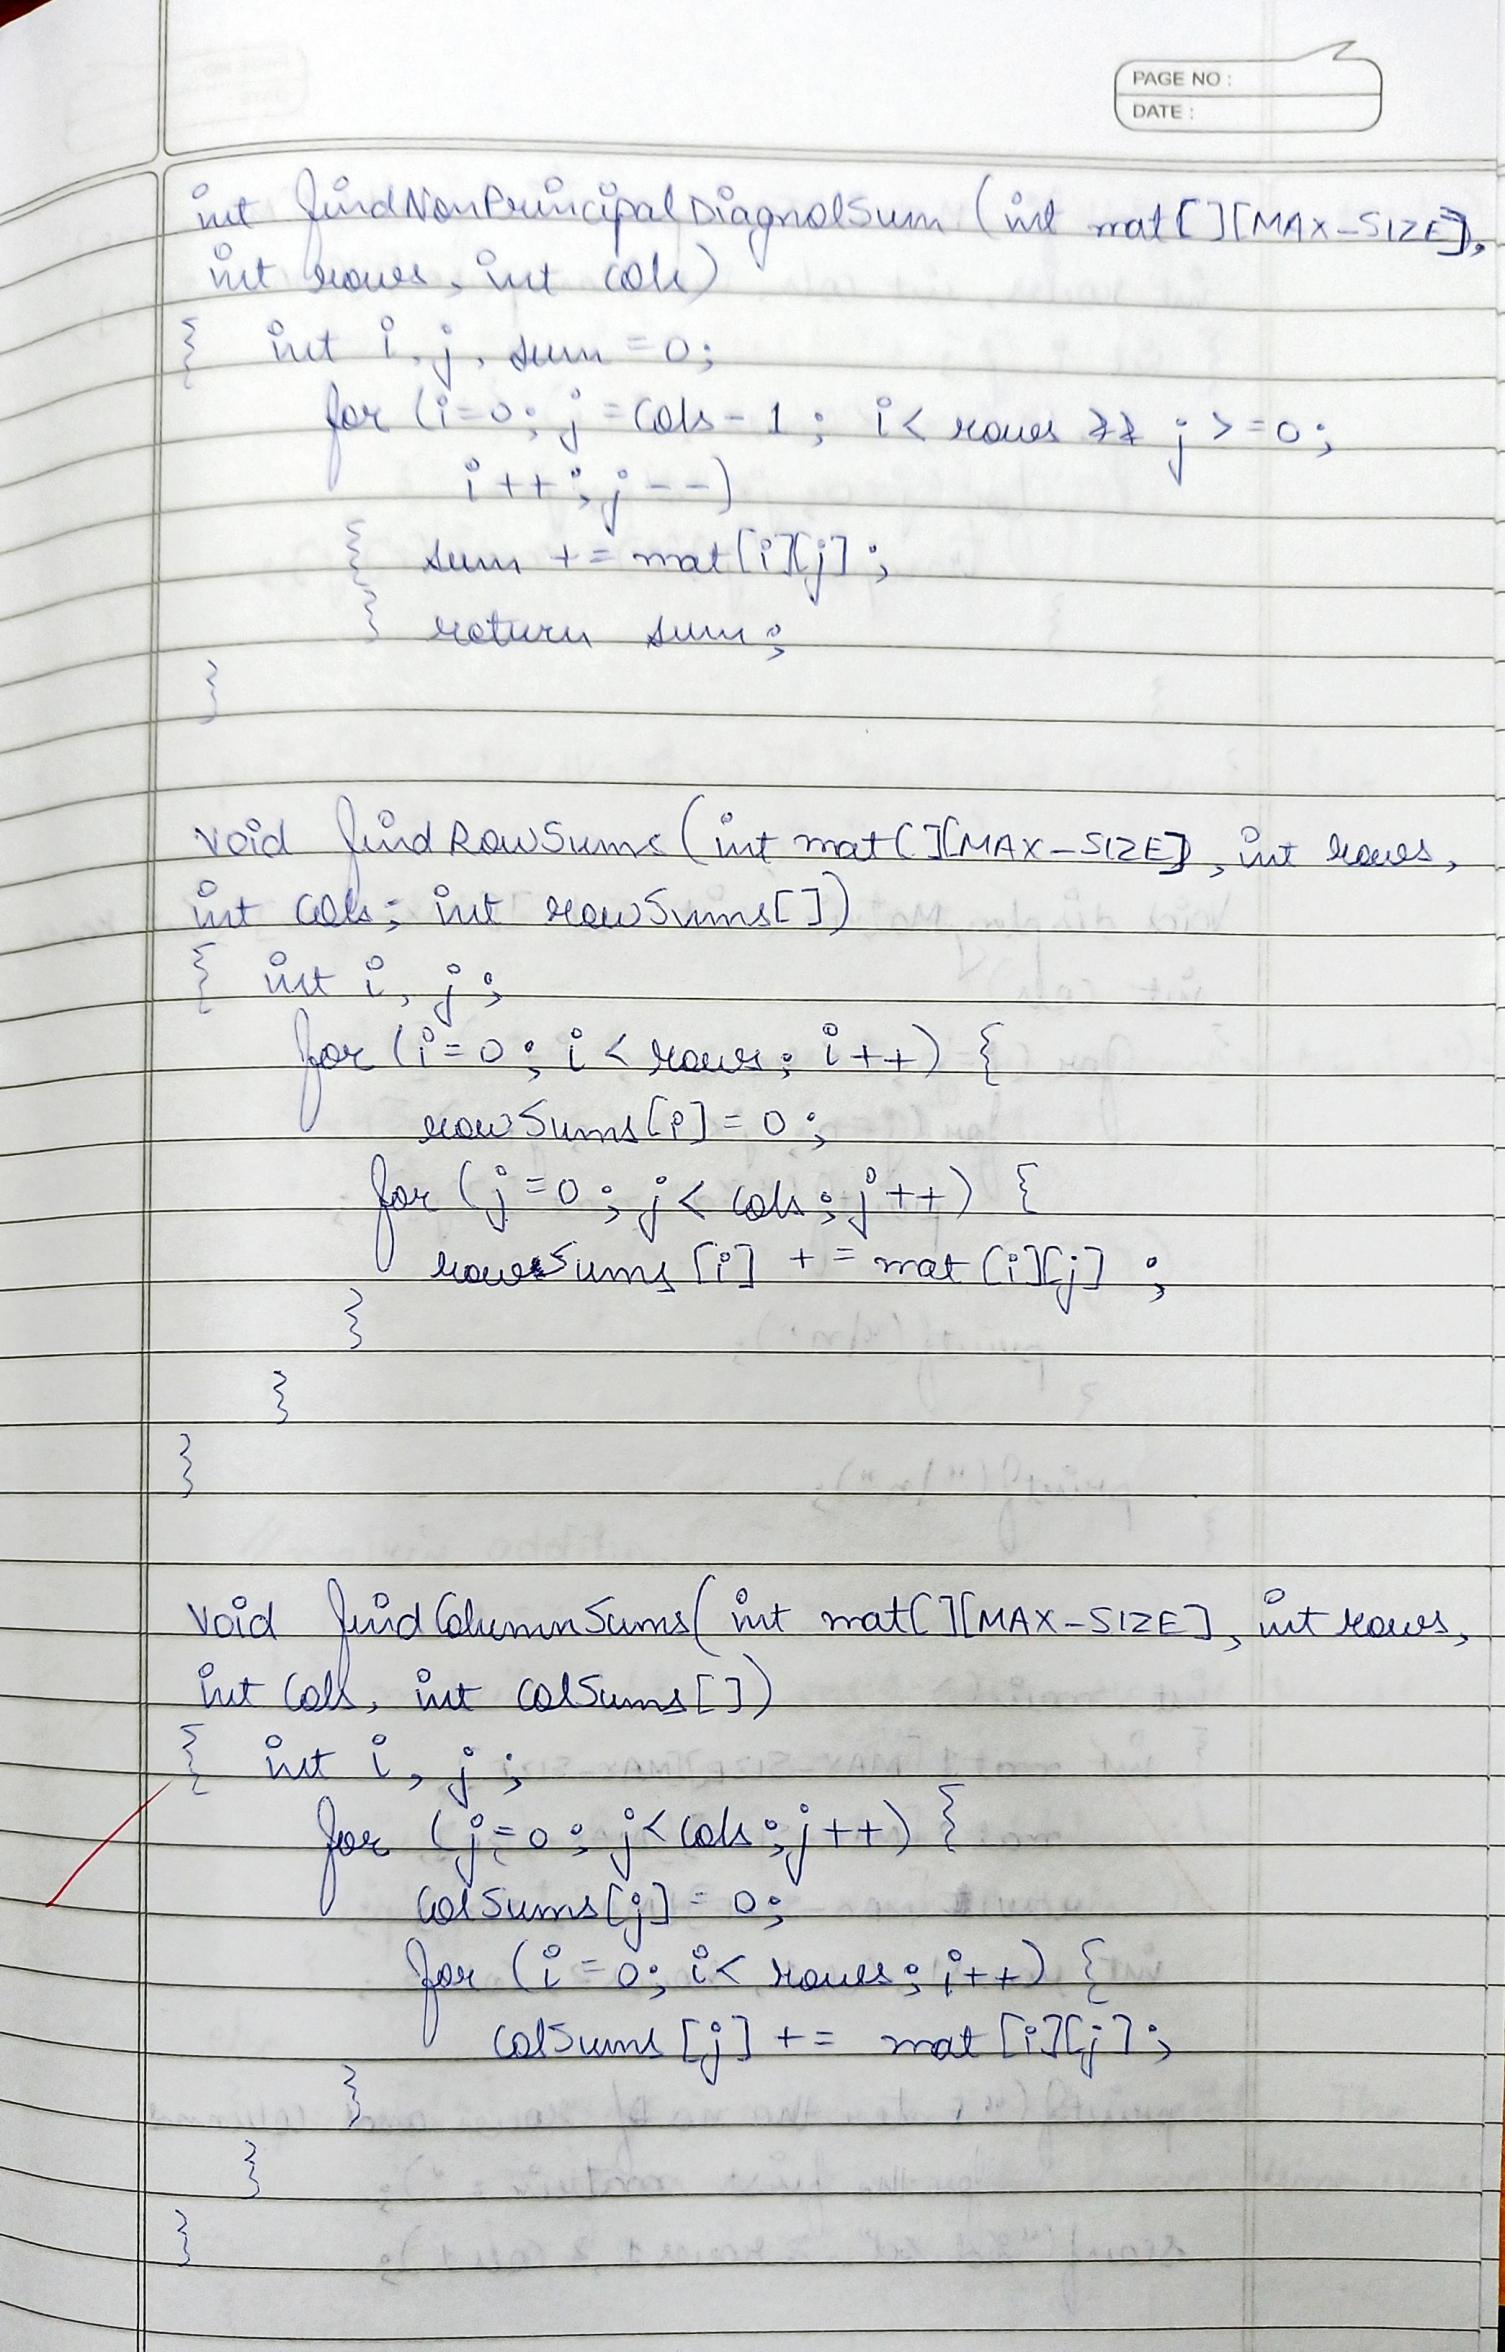 PAGE NO :
DATE :
int findNonPrincipalDiagnolSum (int mat[][MAX-SIZE],
int rows, int cols)
{ int i, j, sum = 0;
for (i=0; j = cols - 1 ; i < rows && j >= 0 ;
i++ ; j --)
{ sum += mat[i][j] ;
} return sum ;
}
void findRowSums (int mat[][MAX-SIZE], int rows,
int cols; int rowSums[])
{ int i, j ;
for (i=0 ; i < rows ; i++) {
rowSums[i] = 0 ;
for (j=0 ; j < cols ; j++) {
rowSums[i] += mat[i][j] ;
}
}
}
void findColumnSums( int mat[][MAX-SIZE], int rows,
int cols, int colSums[])
{ int i, j ;
for (j=0 ; j < cols ; j++) {
colSums[j] = 0 ;
for (i = 0; i < rows ; i++) {
colSums[j] += mat[i][j] ;
}
}
}